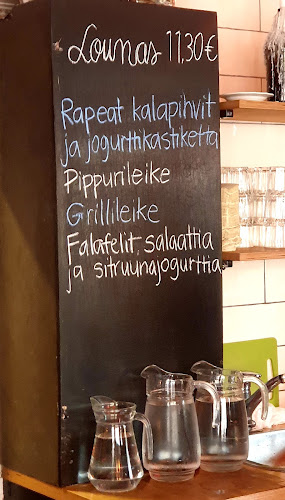 Lounas 11,30€
Rapeat kalapihvit
ja jogurttikastiketta
Pippurileike
Grillileike
Falafelit, salaattia
ja sitruunajogurttia